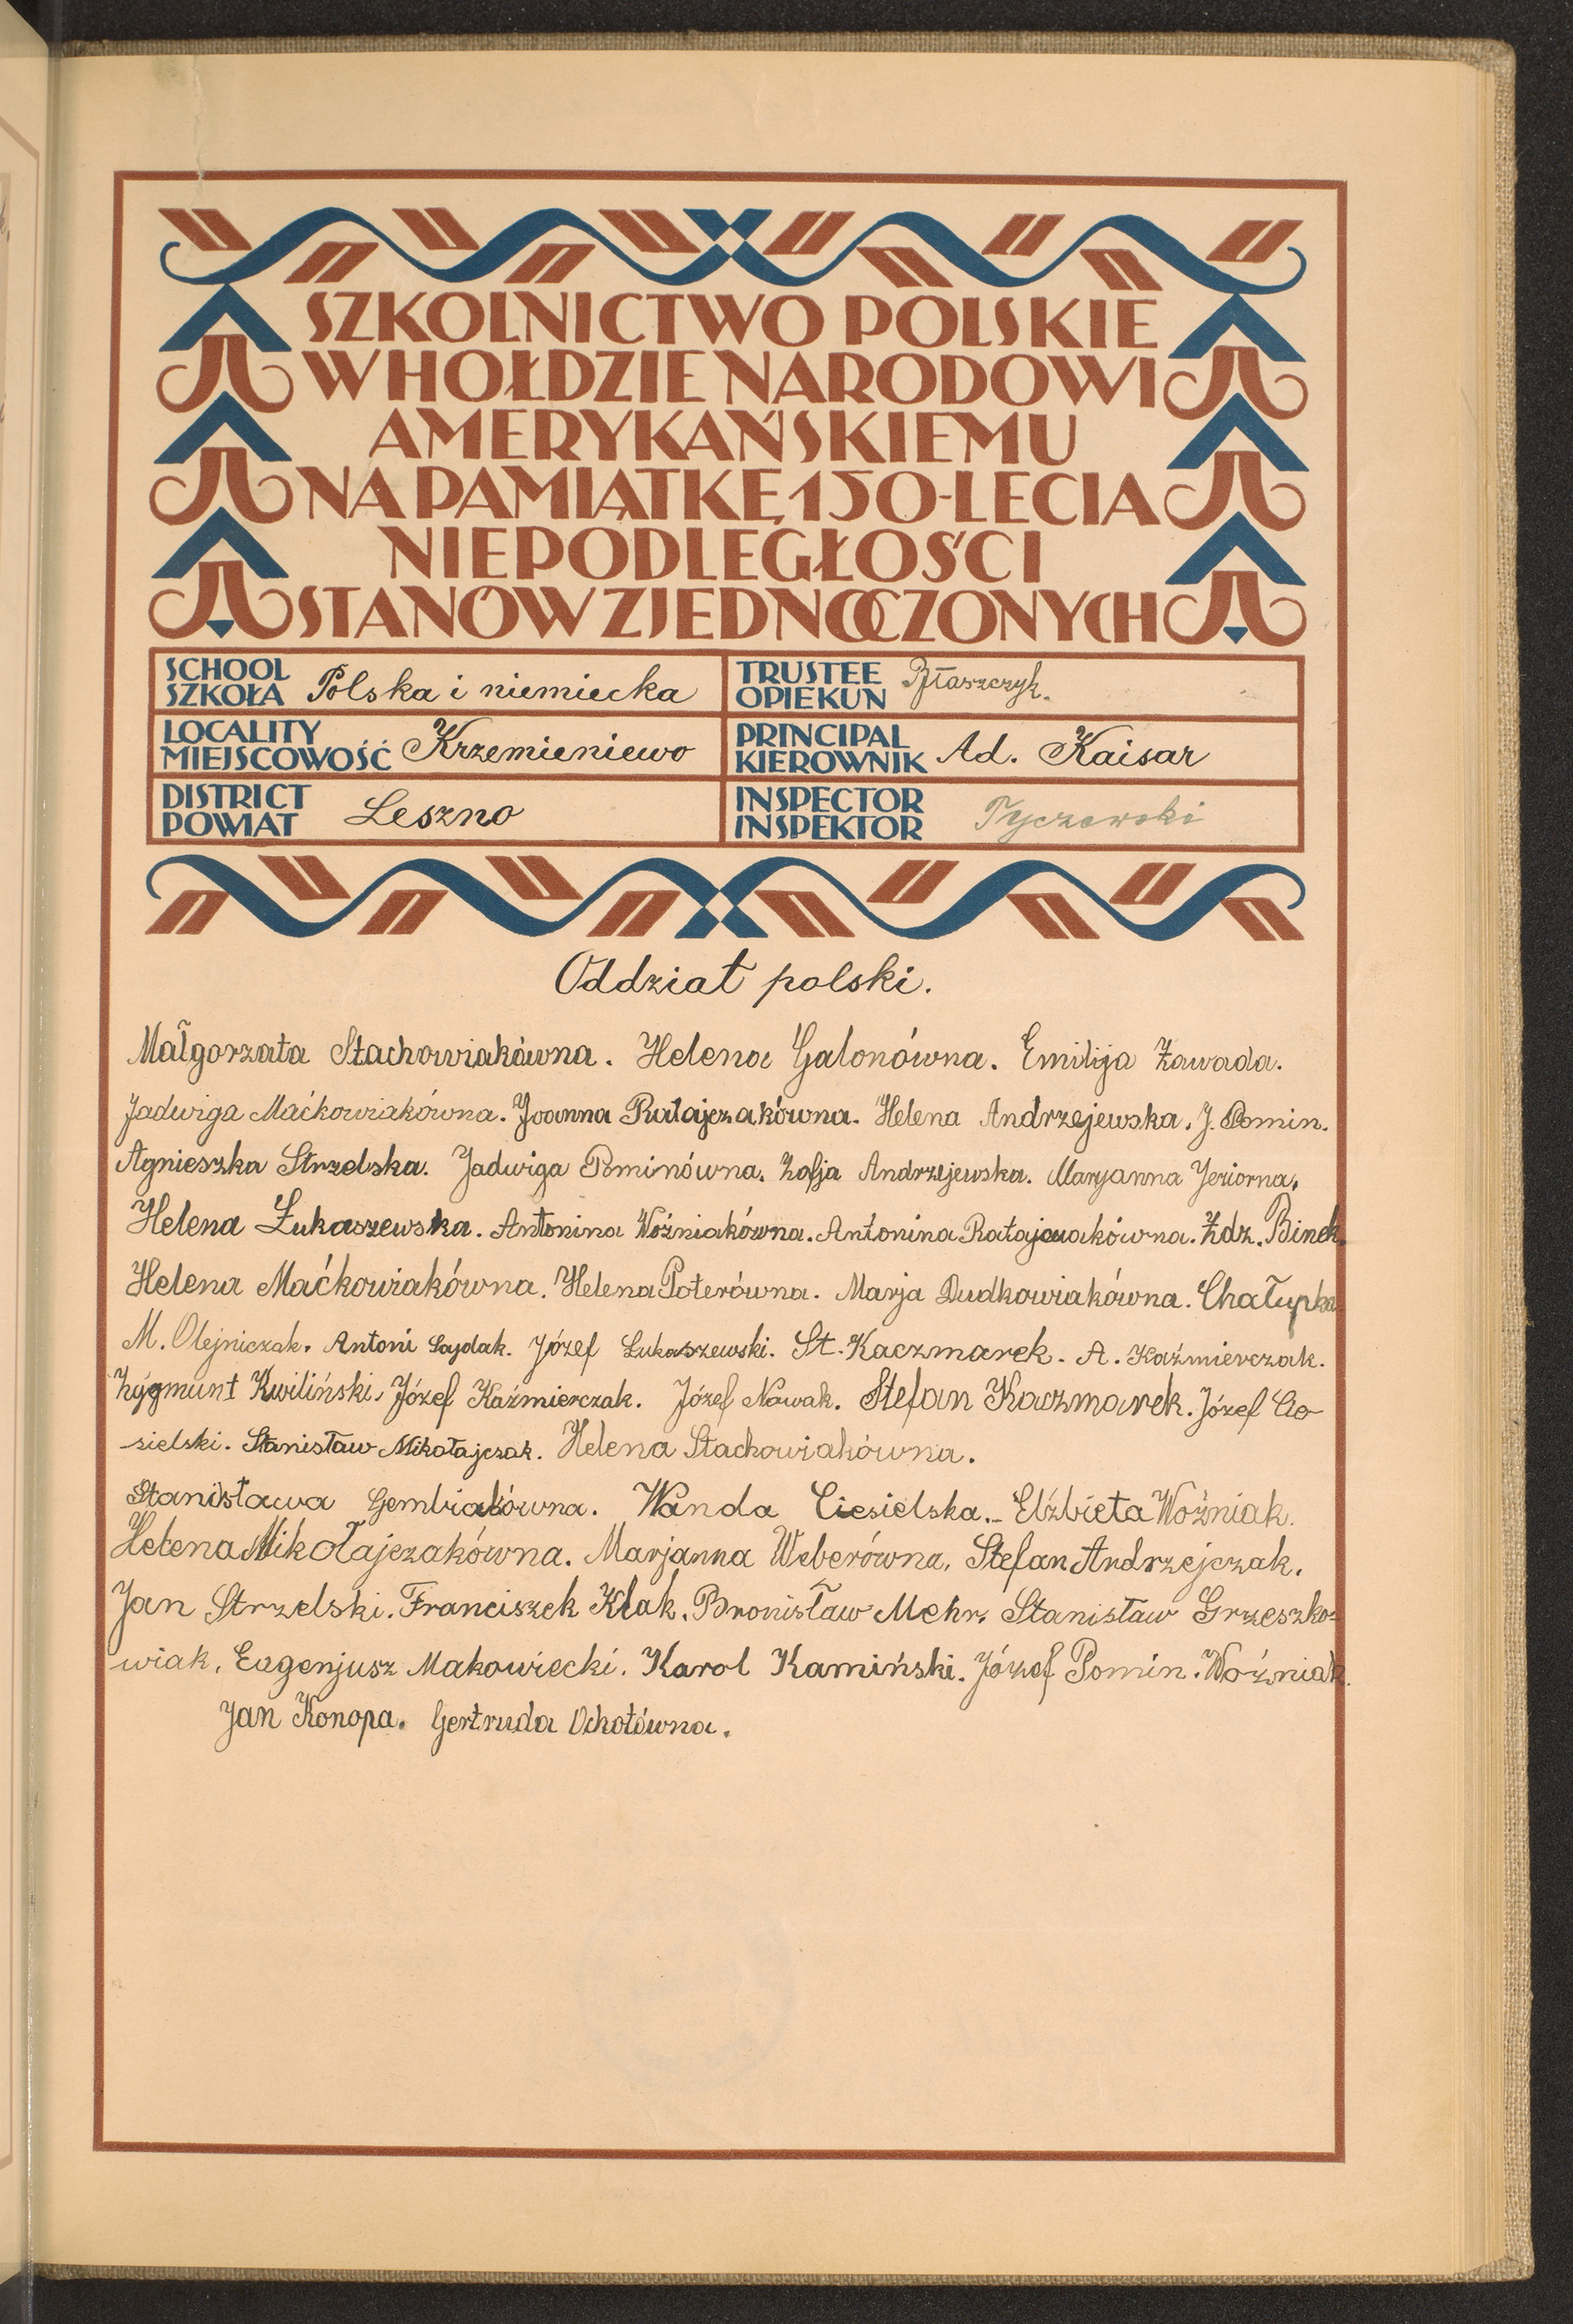 SZKOLNICTWO POLSKIE
W HOŁDZIE NARODOWI
AMERYKAŃSKIEMU
NA PAMIĄTKĘ 150-LECIA
NIEPODLEGŁOŚCI
STANÓW ZJEDNOCZONYCH
SCHOOL
SZKOŁA Polska i niemiecka
TRUSTEE
OPIEKUN Błaszczyk.
LOCALITY
MIEJSCOWOŚĆ Krzemieniewo
PRINCIPAL
KIEROWNIK Ad. Kaisar
DISTRICT
POWIAT Leszno
INSPECTOR
INSPEKTOR Tyczewski
Oddział polski.
Małgorzata Stachowiakówna. Helena Galonówna. Emilija Zawada.
Jadwiga Maćkowiakówna. Joanna Ratajczakówna. Helena Andrzejewska. J. Pomin.
Agnieszka Strzelska. Jadwiga Pominówna. Zofja Andrzejewska. Maryanna Jeziorna.
Helena Łukaszewska. Antonina Woźniakówna. Antonina Ratajczakówna. Zdz. Binek.
Helena Maćkowiakówna. Helena Poterówna. Marja Dudkowiakówna. Chałupka
M. Olejniczak. Antoni Sajdak. Józef Łukaszewski. St. Kaczmarek. A. Kaźmierczak.
Zygmunt Kwiliński. Józef Kaźmierczak. Józef Nowak. Stefan Kaczmarek. Józef Cie-
sielski. Stanisław Mikołajczak. Helena Stachowiakówna.
Stanisława Gembiakówna. Wanda Ciesielska. Elżbieta Woźniak.
Helena Mikołajczakówna. Marjanna Weberówna. Stefan Andrzejczak.
Jan Strzelski. Franciszek Klak. Bronisław Mehr. Stanisław Grzeszko-
wiak. Eugenjusz Makowiecki. Karol Kamiński. Józef Pomin. Woźniak.
Jan Konopa. Gertruda Ochotówna.